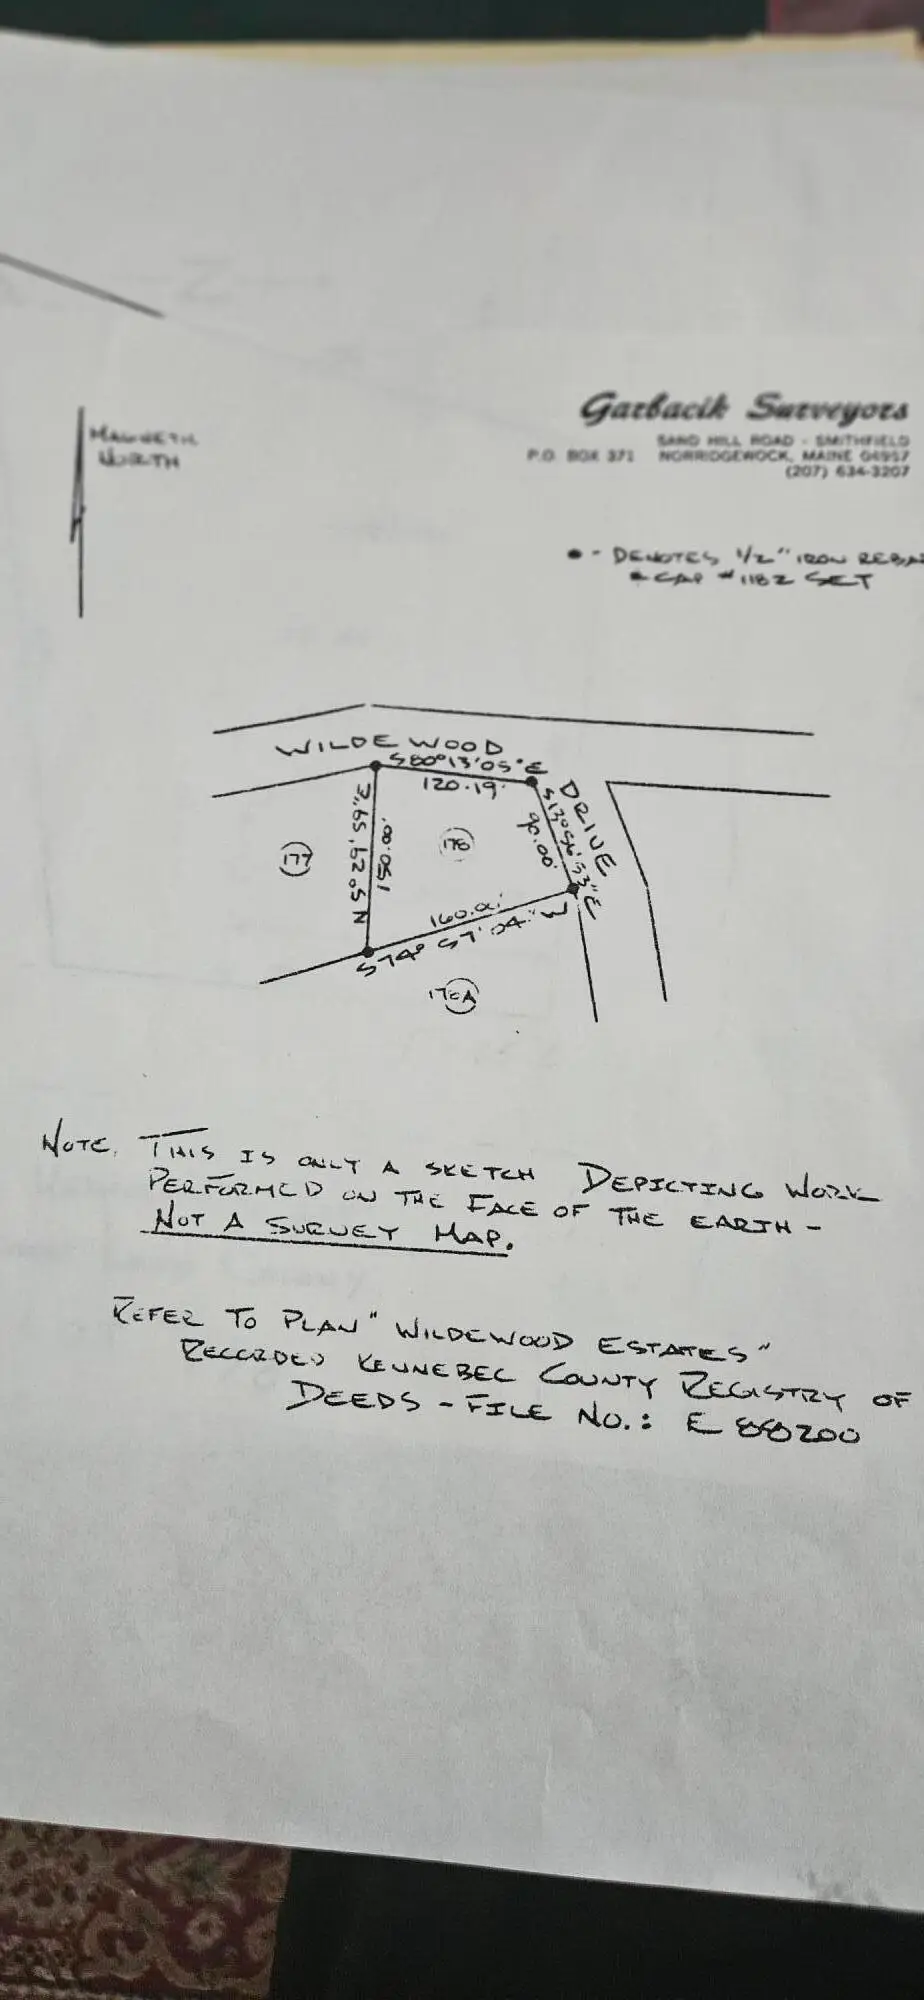 MAGNETIC
NORTH
Garbacik Surveyors
SAND HILL ROAD - SMITHFIELD
P.O. BOX 371 NORRIDGEWOCK, MAINE 04957
(207) 634-3207
● - DENOTES 1/2" IRON REBA
& CAP #1182 SET
WILDEWOOD
DRIVE
S80°13'05"E
120.19'
S13°56'53"E
90.00'
177
150.00'
160.01'
S74° 57' 04" W
NOTE. THIS IS ONLY A SKETCH DEPICTING WORK
PERFORMED ON THE FACE OF THE EARTH -
NOT A SURVEY MAP.
REFER TO PLAN "WILDEWOOD ESTATES"
RECORDED KENNEBEC COUNTY REGISTRY OF
DEEDS - FILE NO.: E 88200